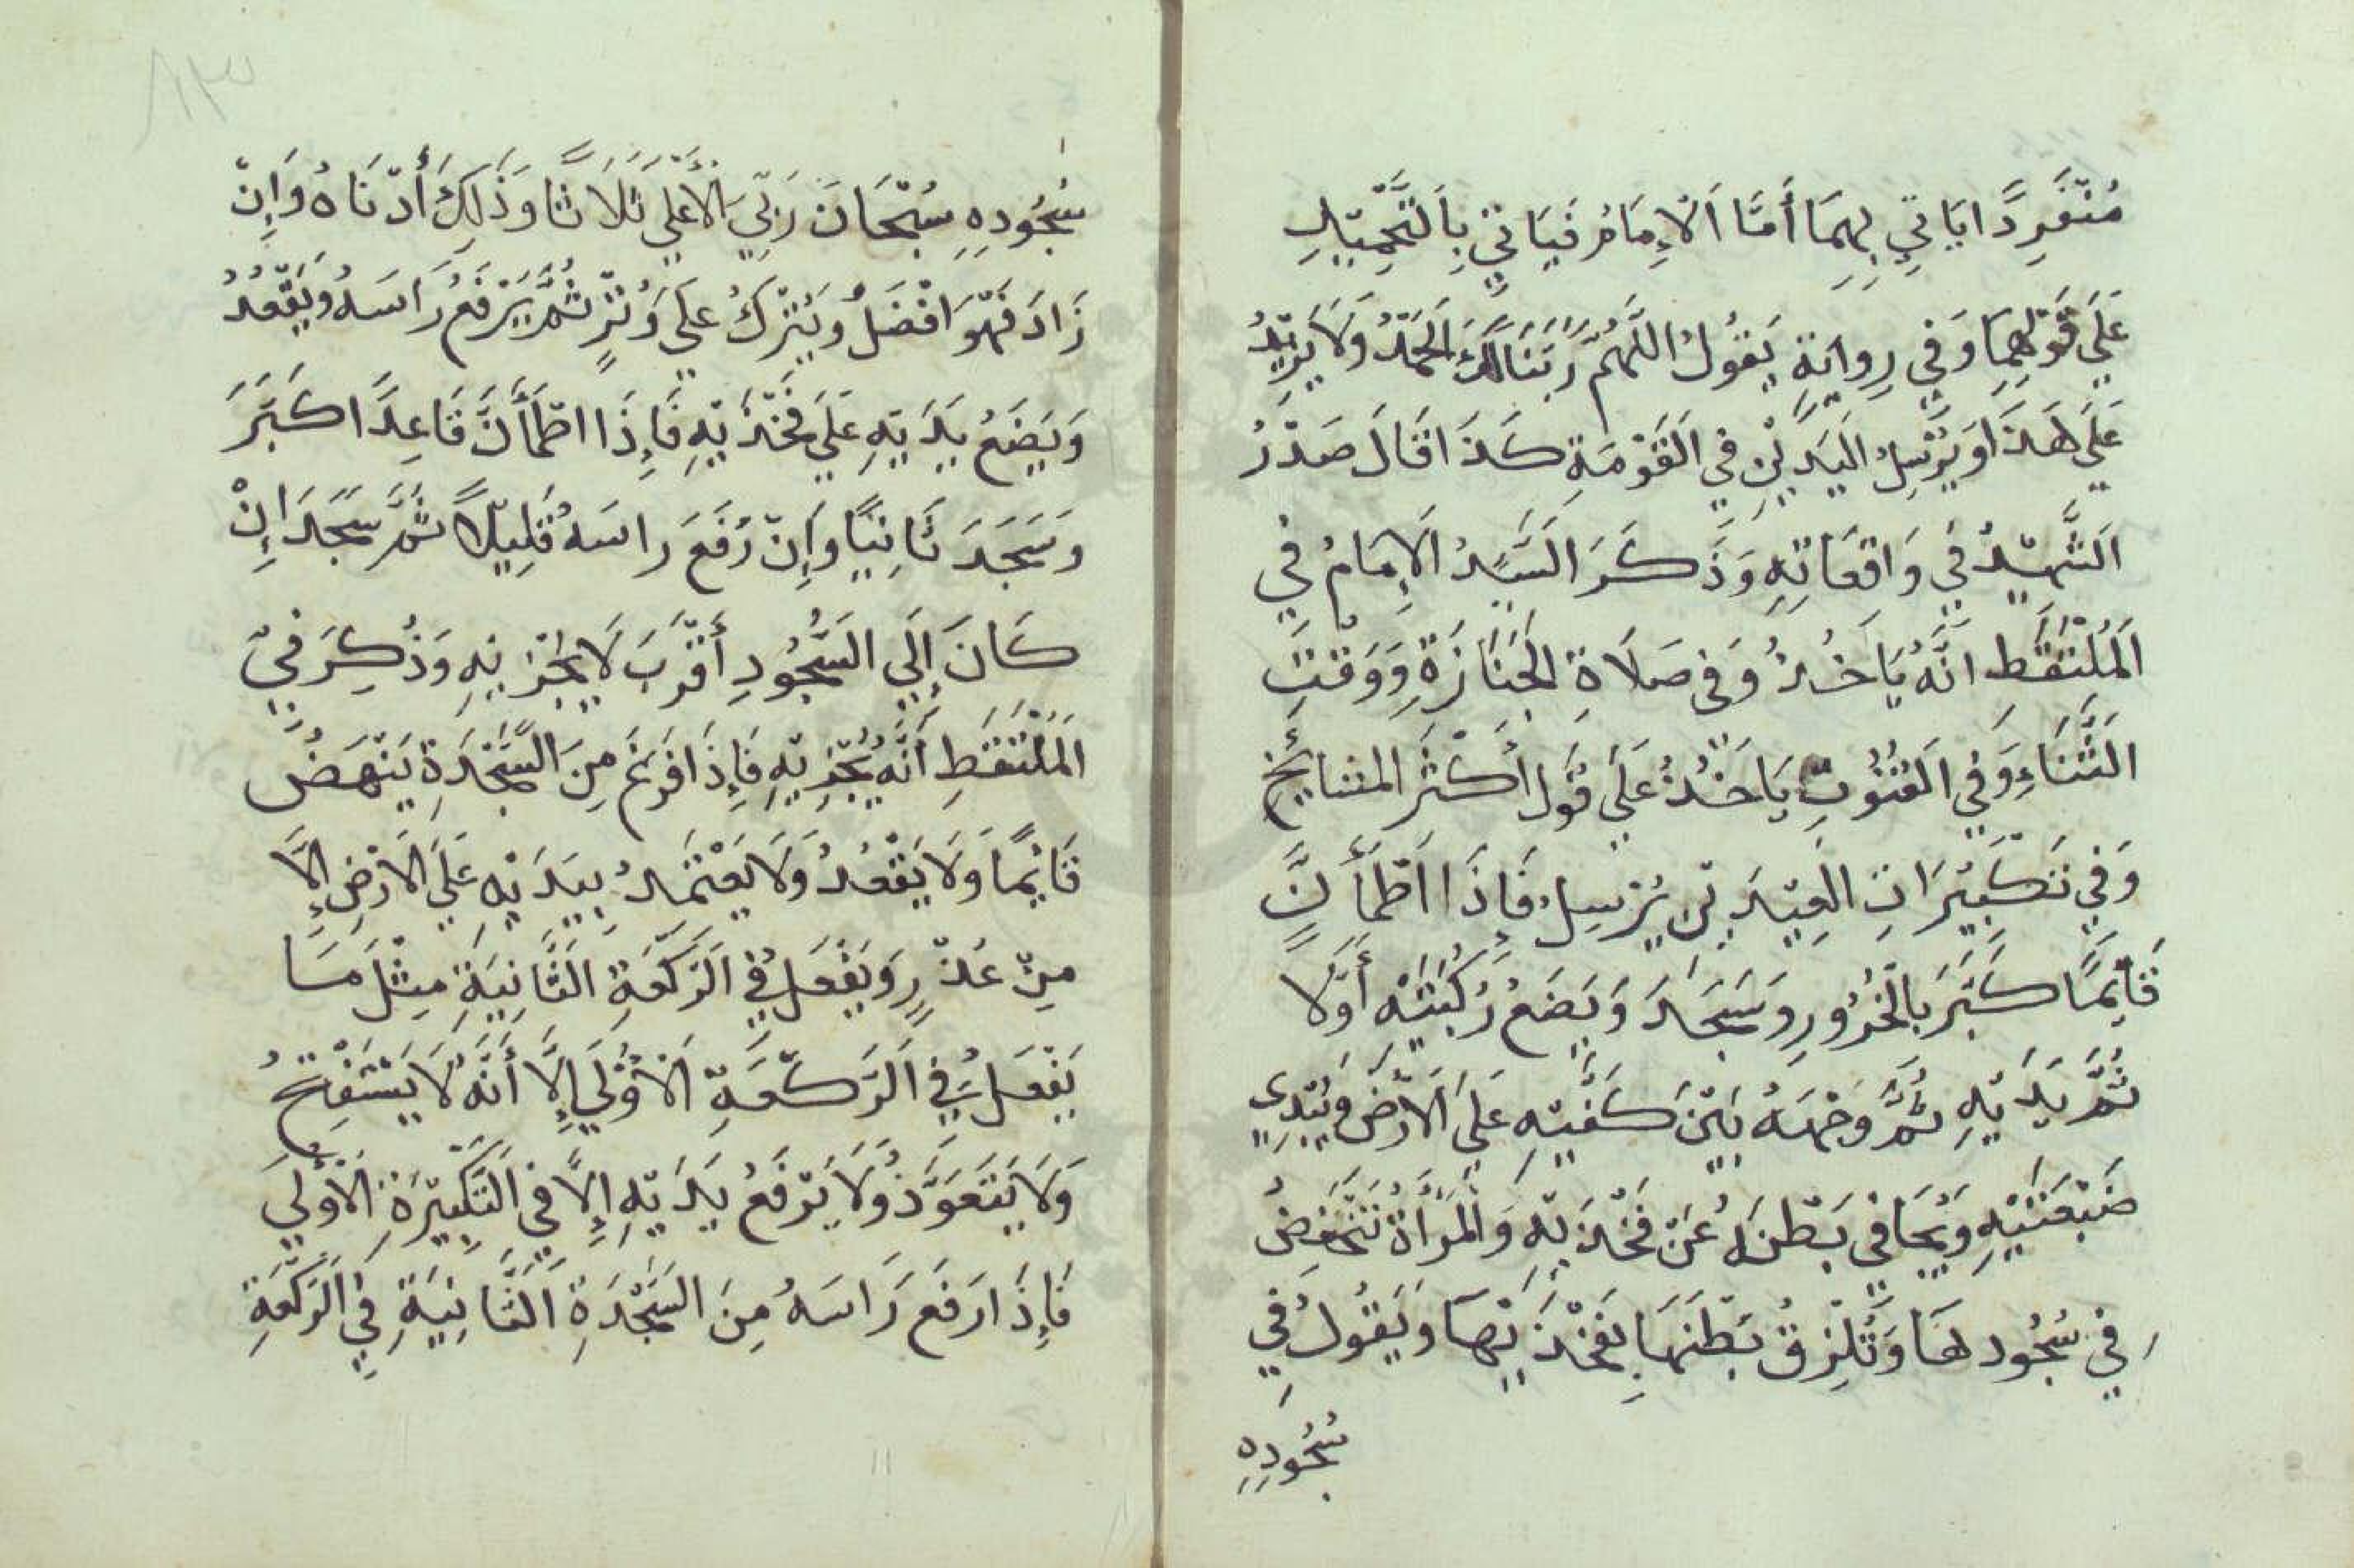 مُنْفَرِدًا يَاتِي بِهِمَا أَمَّا اَلْإِمَامُ فَيَاتِي بِالتَّحْمِيْدِ
عَلَي قَوْلِهِمَا وَفِي رِوايَةٍ يَقُولُ اللَّهُمَّ رَبَّنَا لَكَ الْحَمْدُ وَلَا يَزِيْدُ
عَلَي هَذَا وَيُرْسِلُ اليَدَيْنِ فِي القَوْمَةِ كَذَا قَالَ صَدْرُ
اَلشَّهِيْدُ فِي وَاقِعَاتِهِ وَذَكَرَ السَّيِّدُ الْاِمَامُ فِي
اَلمُلْتَقَطِ انَّهُ يَاخُذُ وَفِي صَلَاةِ الجَنَازَةِ وَوَقْتِ
الثَّنَاءِ وَفِي القُنُوْتِ يَاخُذُ عَلَي قَوْلِ أَكْثَرَ المشَايِخِ
وَفِي تَكْبِيْرَاتِ العِيْدَيْنِ يُرْسِلُ فَاِذَا اطْمَأَنَّ
قَايِمًا كَبَّرَ بِالخُرُورِ وَسَجَدَ وَيَضَعُ رُكْبَتَيْهِ أَوَّلَا
ثُمَّ يَدَيْهِ ثُمَّ وَجْهَهُ بَيْنَ كَفَّيْهِ عَلَي الْاَرْضِ وَيُبْدِي
ضَبْعَيْهِ وَيُجَافِي بَطْنَهُ عَنْ فَخْذَيْهِ وَالْمَرْأَةُ تَنْخَفِضُ
فِي سُجُودِهَا وَتُلْزِقُ بَطْنَهَا بِفَخْذَيْهَا وَيَقُولُ فِي
سُجُودِهِ
سُجُودِهِ سُبْحَانَ رَبِّيَ الْأَعْلَي ثَلَاثًا وَذَلِكَ أَدْنَاهُ وَاِنْ
زَادَ فَهْوَ اَفْضَلُ وَيَتْرُكُ عَلَي وَتْرٍ ثُمَّ يَرْفَعُ رَاسَهُ وَيَقْعُدُ
وَيَضَعُ يَدَيْهِ عَلَي فَخْذَيْهِ فَاِذَا اطْمَأَنَّ قَاعِدًا كَبَّرَ
وَسَجَدَ ثَانِيًا وَاِنْ رَفَعَ رَاسَهُ قَلِيْلًا ثُمَّ سَجَدَ اِنْ
كَانَ إِلَي السُّجُودِ أَقْرَبَ لَا يُجْزِيْهِ وَذُكِرَ فِيْ
المُلْتَقَطِ أَنَّهُ يُجْزِيْهِ فَاِذَا فَرِغَ مِنَ السَّجْدَةِ يَنْهَضُ
قَايِمًا وَلَا يَقْعُدُ وَلَا يَعْتَمِدُ بِيَدَيْهِ عَلَي الْاَرْضِ اِلَّا
مِنْ عُذْرٍ وَيَفْعَلُ فِي الرَّكْعَةِ الثَّانِيَةِ مِثْلَ مَا
يَفْعَلُ فِي الرَّكْعَةِ الْاُوْلَي اِلَّا أَنَّهُ لَا يَسْتَفْتِحُ
وَلَا يَتَعَوَّذُ وَلَا يَرْفَعُ يَدَيْهِ اِلَّا فِي التَّكْبِيْرَةِ الْاُوْلَي
فَاِذَا رَفَعَ رَاسَهُ مِنَ السَّجْدَةِ الثَّانِيَةِ فِي الرَّكْعَةِ